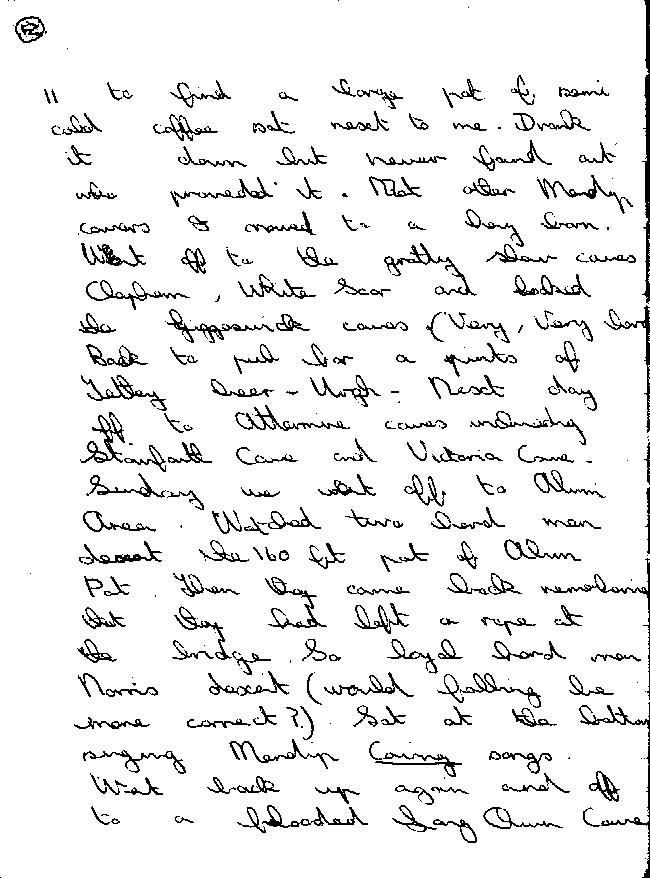 11 to find a large pot of semi
cold coffee sat next to me. Drank
it down but never found out
who proveded it. Met other Mendip
cavers & moved to a hay barn.
Went off to the grotty show caves
Clapham, White Scar and looked
the Giggeswick caves (Very, Very
Back to pub for a pints of
Tetley beer - Urgh - Next day
off to Attermire caves including
Stainforth Cave and Victoria Cave.
Sunday we went off to Alum
Area. Watched two hard men
descent the 160 ft pot of Alum
Pot. Then they came back
that they had left a rope at
the bridge. So loyal hard man
Norris descent (would falling be
more correct?). Sat at the bottom
singing Mendip Caving songs.
Went back up again and off
to a flooded Long Churn Cave